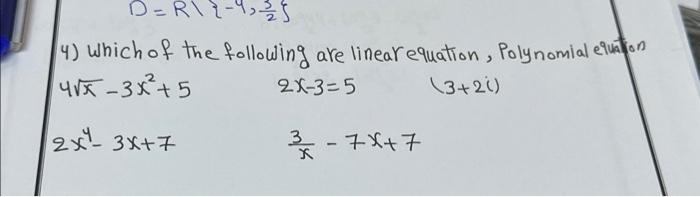 D = R \ {-4, 3/2}
4) which of the following are linear equation, Polynomial equation
4√x - 3x² + 5 2x-3=5 (3+2i)
2x⁴ - 3x+7 3/x - 7x+7